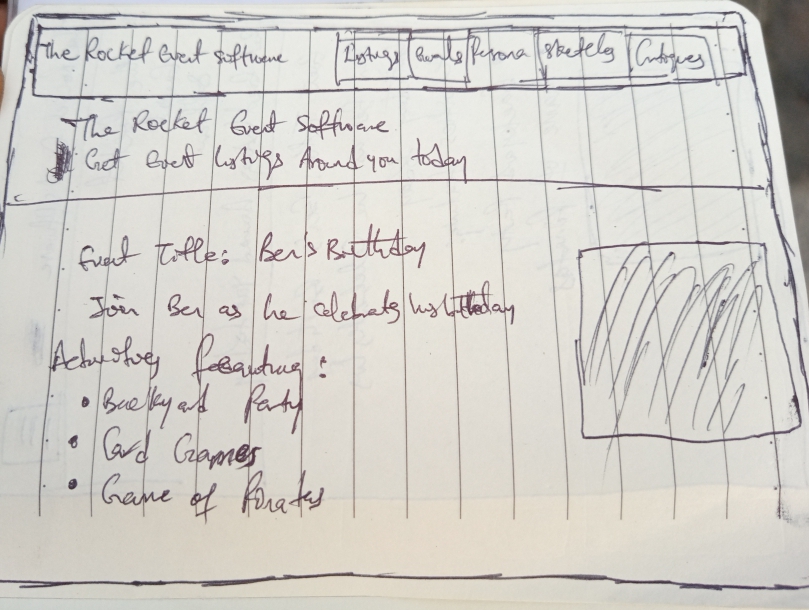 The Rocket Event Software Listings Persona Sketches Critiques
The Rocket Event Software
Get Event listings Around you today
Event Title: Ben's Birthday
Join Ben as he celebrates his birthday
Activities featuring:
• Backyard Party
• Card Games
• Game of Pirates